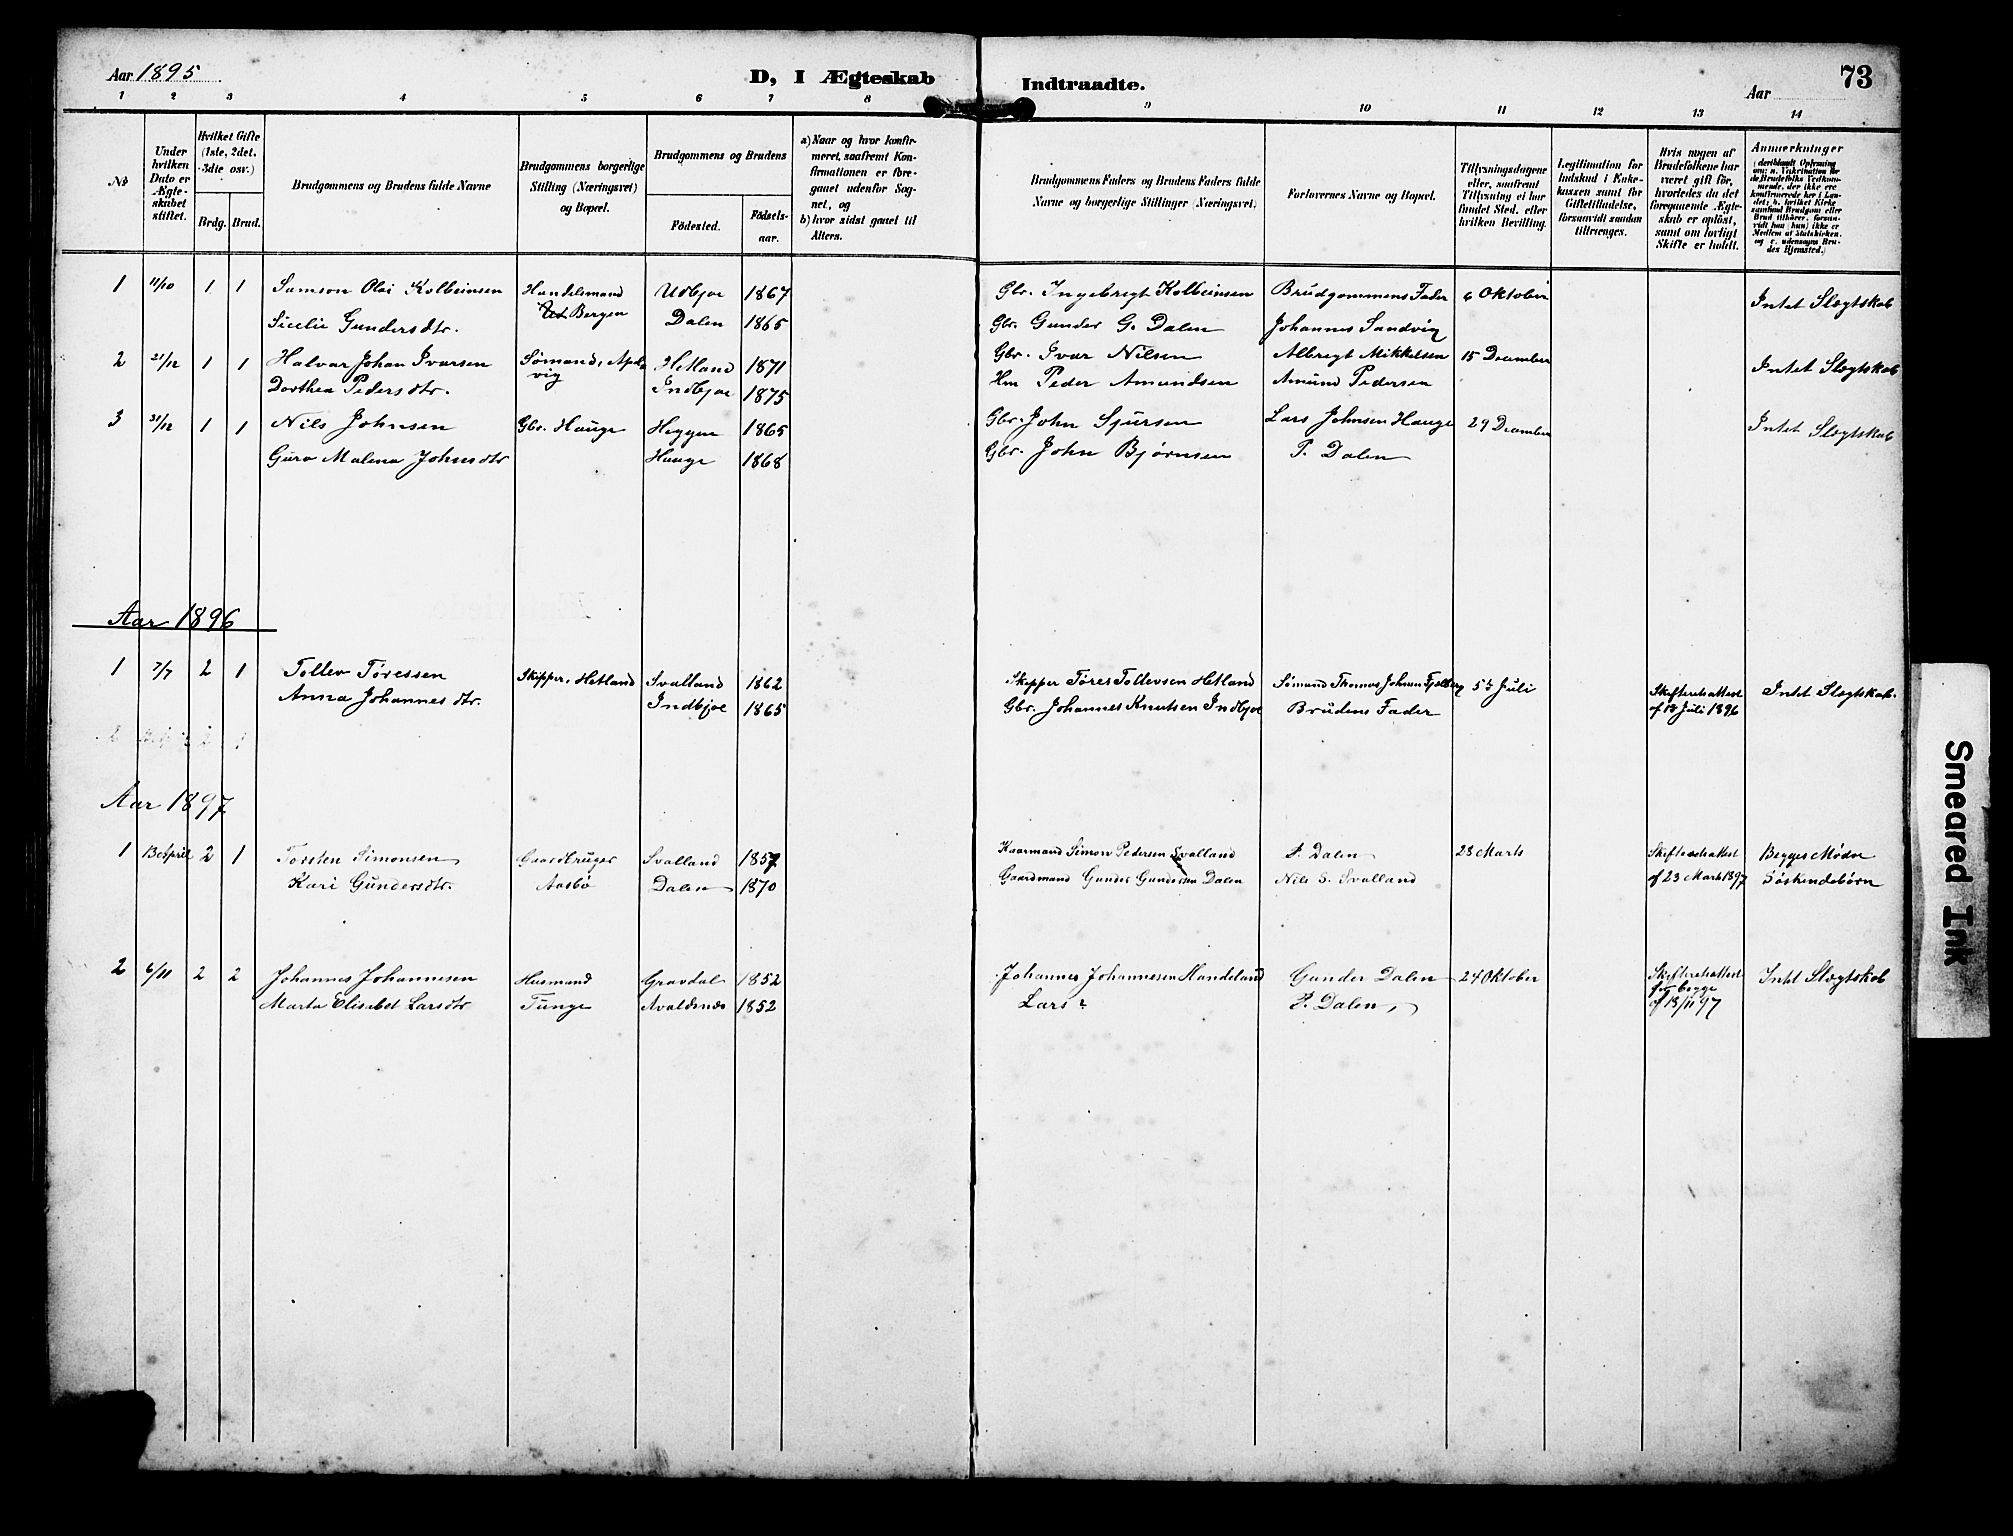 Aar 1895
D, I Ægteskab Indtraadte.
Aar
73
1 2 3 4 5 6 7 8 9 10 11 12 13 14
№
Under hvilken Dato er Ægteskabet stiftet.
Hvilket Gifte (1ste, 2det, 3die osv.)
Brdg. Brud.
Brudgommens og Brudens fulde Navne
Brudgommens borgerlige Stilling (Næringsvei) og Bopæl.
Brudgommens og Brudens
Födested.
Födselsaar.
a) Naar og hvor konfirmeret, saafremt Konfirmationen er foregaaet udenfor Sognet, og
b) hvor sidst gaaet til Alters.
Brudgommens Faders og Brudens Faders fulde Navne og borgerlige Stillinger (Næringsvei)
Forlovernes Navne og Bopæl.
Tillysningsdagene eller, saafremt Tillysning ei har fundet Sted, efter hvilken Bevilling.
Legitimation for Indskud i Enkekassen samt for Giftetilladelse, forsaavidt saadan tiltrænges.
Hvis nogen af Brudefolkene har været gift för, hvorledes da det foregaaende Ægteskab er oplöst, samt om lovligt Skifte er holdt.
Anmærkninger
1 11/10 1 1 Samson Olai Kolbeinsen Handelsmand Udbjoe 1867 Gbr. Ingebrigt Kolbeinsen Brudgommens Fader 6 Oktober Intet Slægtskab
Sicelie Gundersdtr. Bergen Dalen 1865 Gbr. Gunder G. Dalen Johannes Sandvig
2 21/12 1 1 Halvar Johan Ivarsen Sømand, Apelvig Hetland 1871 Gbr. Ivar Nilsen Albregt Mikkelsen 15 December Intet Slægtskab
Dorthea Pedersdtr. Indbjoe 1875 Hm Peder Amundsen Amund Pedersen
3 31/12 1 1 Nils Johnsen Gbr. Hauge Heggen 1865 Gbr. John Sjursen Lars Johnsen Hauge 29 December Intet Slægtskab
Guro Malena Johnsdtr Hauge 1868 Gbr. John Bjørnsen P. Dalen
Aar 1896
1 7/7 2 1 Tollev Tøressen Skipper, Hetland Svalland 1862 Skipper Tøres Tollevsen Hetland Sømand Thomas Johnsen Fjelberg 5te Juli Skifteretsattest Intet Slægtskab.
Anna Johannesdtr. Indbjoe 1865 Gbr. Johannes Knutsen Indbjoe Brudens Fader af 13 Juli 1896
2 1
Aar 1897
1 13 April 2 1 Torsten Simonsen Gaardbruger Svalland 1857 Kaarmand Simon Pedersen Svalland P. Dalen 28 Marts Skifteretsattest Begges Mødre
Kari Gundersdtr. Aasbø Dalen 1870 Gaardmand Gunder Gundersen Dalen Nils S. Svalland af 23 Marts 1897 Søskendebørn
2 6/11 2 2 Johannes Johannesen Husmand Gravdal 1852 Johannes Johannesen Handeland Gunder Dalen 24 Oktober Skifteretsattest Intet Slægtskab
Marta Elisabet Larsdtr Tunge Avaldsnæs 1852 Lars ? P. Dalen for begge
af 13/11 97
Smeared Ink